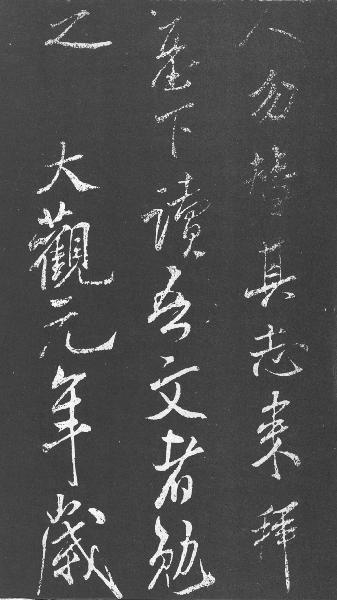 人勿替其志來拜
墓下讀吾文者勉
之 大觀元年歲